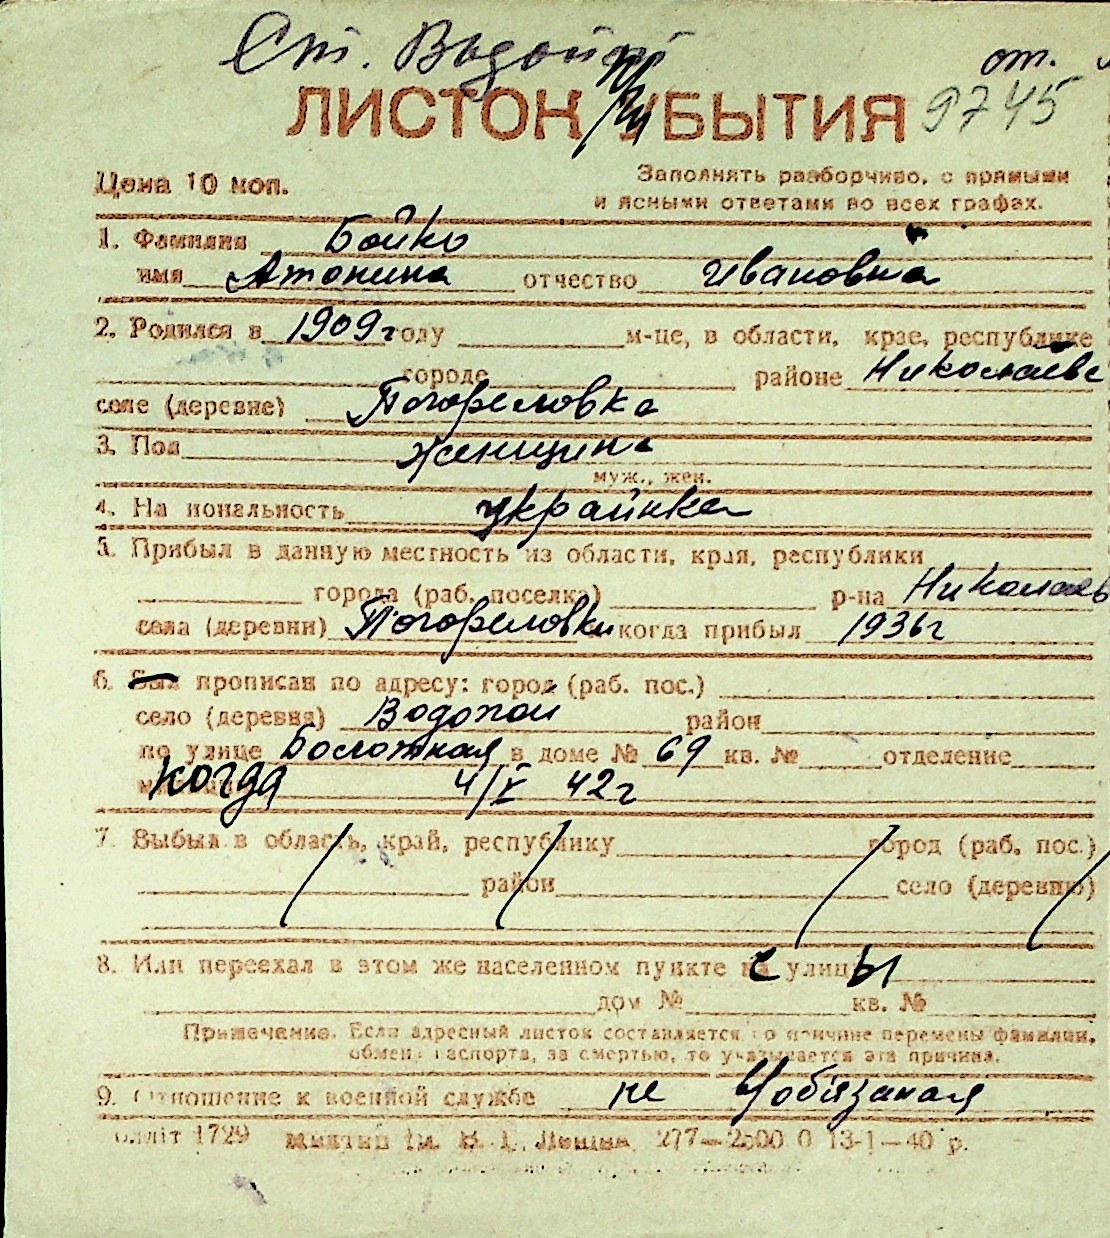 Ст. Водопой
от.
ЛИСТОК УБЫТИЯ 9745
Цена 10 коп.
Заполнять разборчиво, с прямыми
и ясными ответами во всех графах.
1. Фамилия Бойко
имя Атонина отчество Ивановна
2. Родился в 1909 году м-це, в области, крае, республике
городе районе Николаевс
селе (деревне) Погореловка
3. Пол женщина
муж., жен.
4. На иональность украинка
5. Прибыл в данную местность из области, края, республики
города (раб. поселка) р-на Николаев
села (деревни) Погореловки когда прибыл 1936 г
6. Был прописан по адресу: город (раб. пос.)
село (деревня) Водопой район
по улице Болотная в доме № 69 кв. № отделение
когда 4/V 42 г
7. Выбыл в область, край, республику город (раб. пос.)
район село (деревню)
8. Или переехал в этом же населенном пункте с улицы
дом № кв. №
Примечание. Если адресный листок составляется по причине перемены фамилии,
обмена паспорта, за смертью, то указывается эта причина.
9. Отношение к военной службе не в/обязаная
1729 277—2500 0 13-1—40 р.